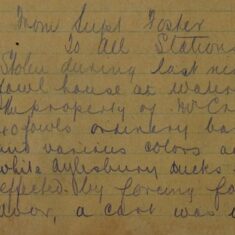 From Supt Foster
To All Stations
Stolen during last
fowl house at Water
the property of Mr Cr
fowls ordinary
and various colors
white Aylesbury ducks
effected by forcing
door, a cart was